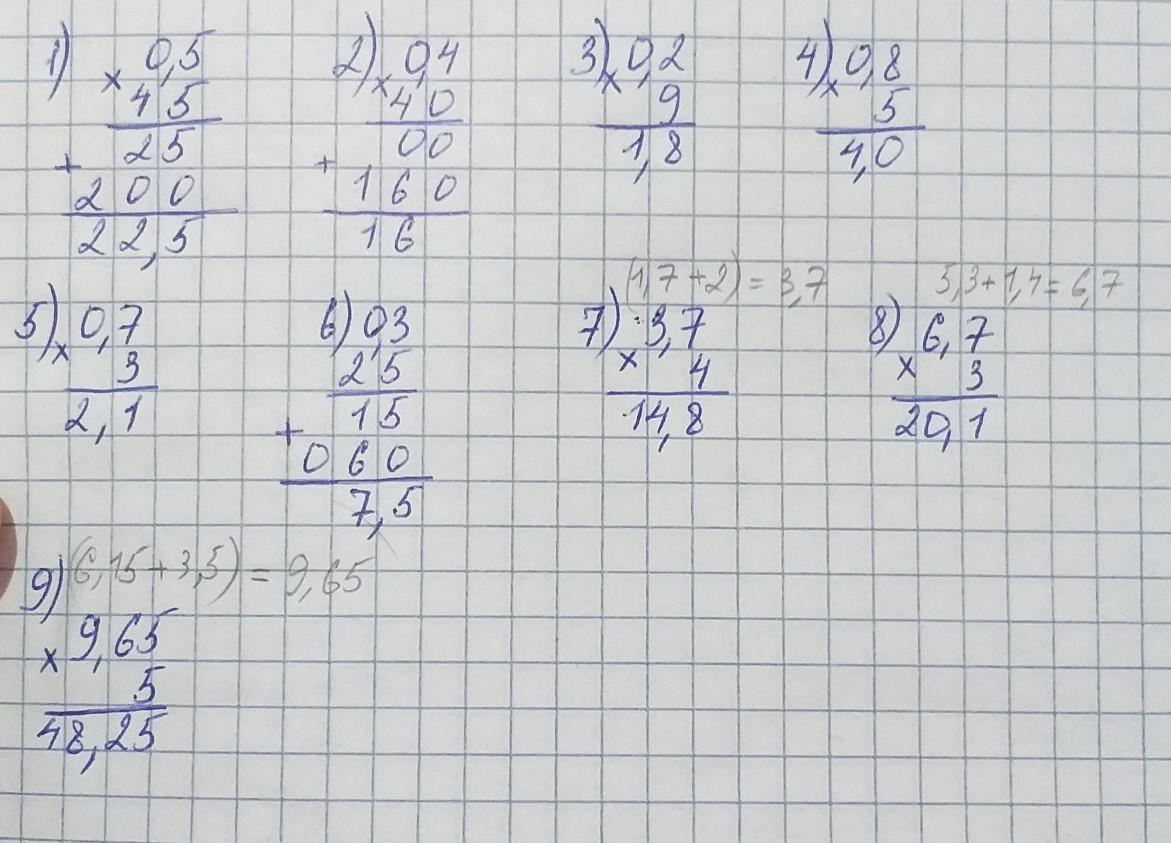 1) 0,5 2) 0,4 3) 0,2 4) 0,8
× 45 × 40 × 9 × 5
25 00 1,8 4,0
+ 200 + 160
22,5 16
(1,7+2) = 3,7 5,3+1,4= 6,7
5) 0,7 6) 0,3 7) 3,7 8) 6,7
× 3 25 × 4 × 3
2,1 15 14,8 20,1
+ 060
7,5
9) (6,15+3,5) = 9,65
× 9,65
5
48,25